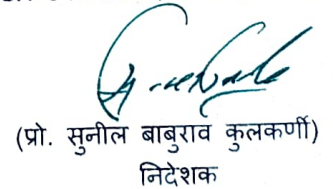 (प्रो. सुनील बाबुराव कुलकर्णी)
निदेशक